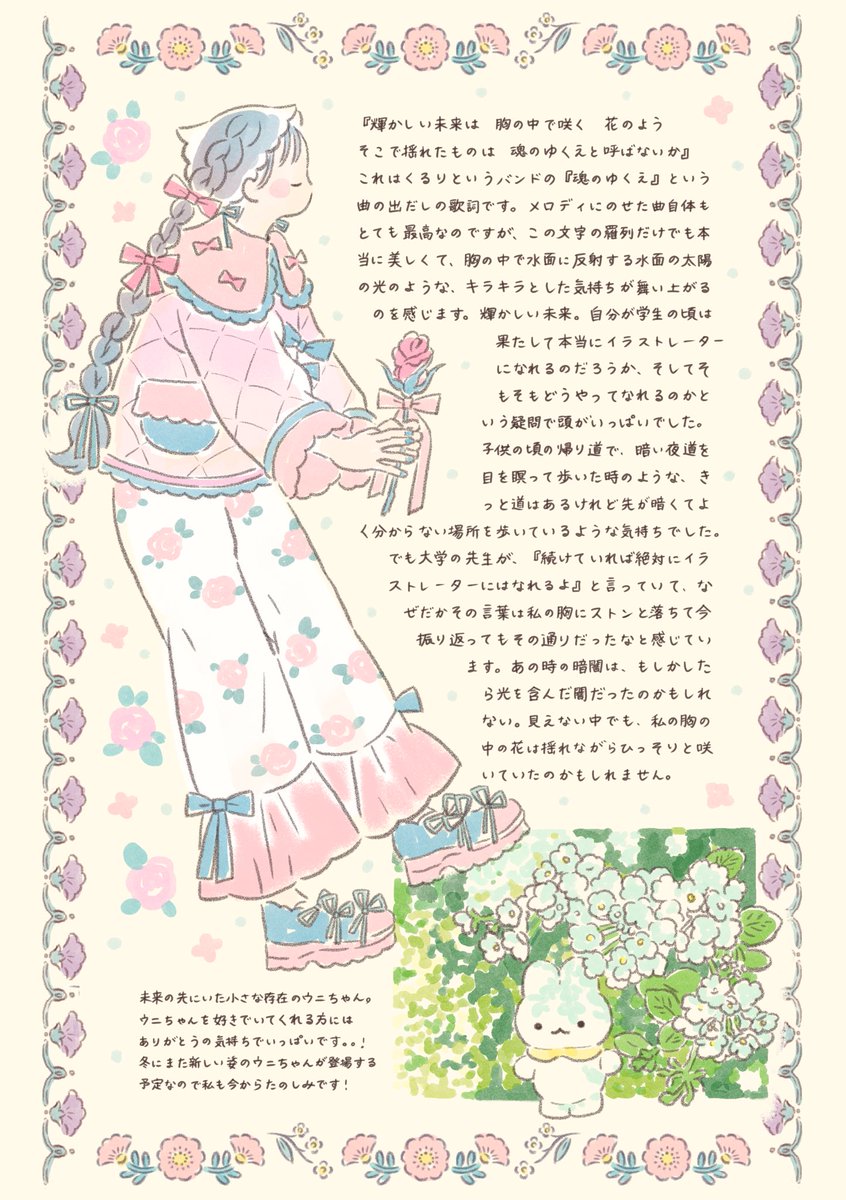 『輝かしい未来は　胸の中で咲く　花のよう
そこで揺れたものは　魂のゆくえと呼ばないか』
これはくるりというバンドの『魂のゆくえ』という
曲の出だしの歌詞です。メロディにのせた曲自体も
とても最高なのですが、この文字の羅列だけでも本
当に美しくて、胸の中で水面に反射する水面の太陽
の光のような、キラキラとした気持ちが舞い上がる
のを感じます。輝かしい未来。自分が学生の頃は
果たして本当にイラストレーター
になれるのだろうか、そしてそ
もそもどうやってなれるのかと
いう疑問で頭がいっぱいでした。
子供の頃の帰り道で、暗い夜道を
目を瞑って歩いた時のような、き
っと道はあるけれど先が暗くてよ
く分からない場所を歩いているような気持ちでした。
でも大学の先生が、『続けていれば絶対にイラ
ストレーターにはなれるよ』と言っていて、な
ぜだかその言葉は私の胸にストンと落ちて今
振り返ってもその通りだったなと感じてい
ます。あの時の暗闇は、もしかした
ら光を含んだ闇だったのかもしれ
ない。見えない中でも、私の胸の
中の花は揺れながらひっそりと咲
いていたのかもしれません。
未来の先にいた小さな存在のウニちゃん。
ウニちゃんを好きでいてくれる方には
ありがとうの気持ちでいっぱいです。。！
冬にまた新しい姿のウニちゃんが登場する
予定なので私も今からたのしみです！